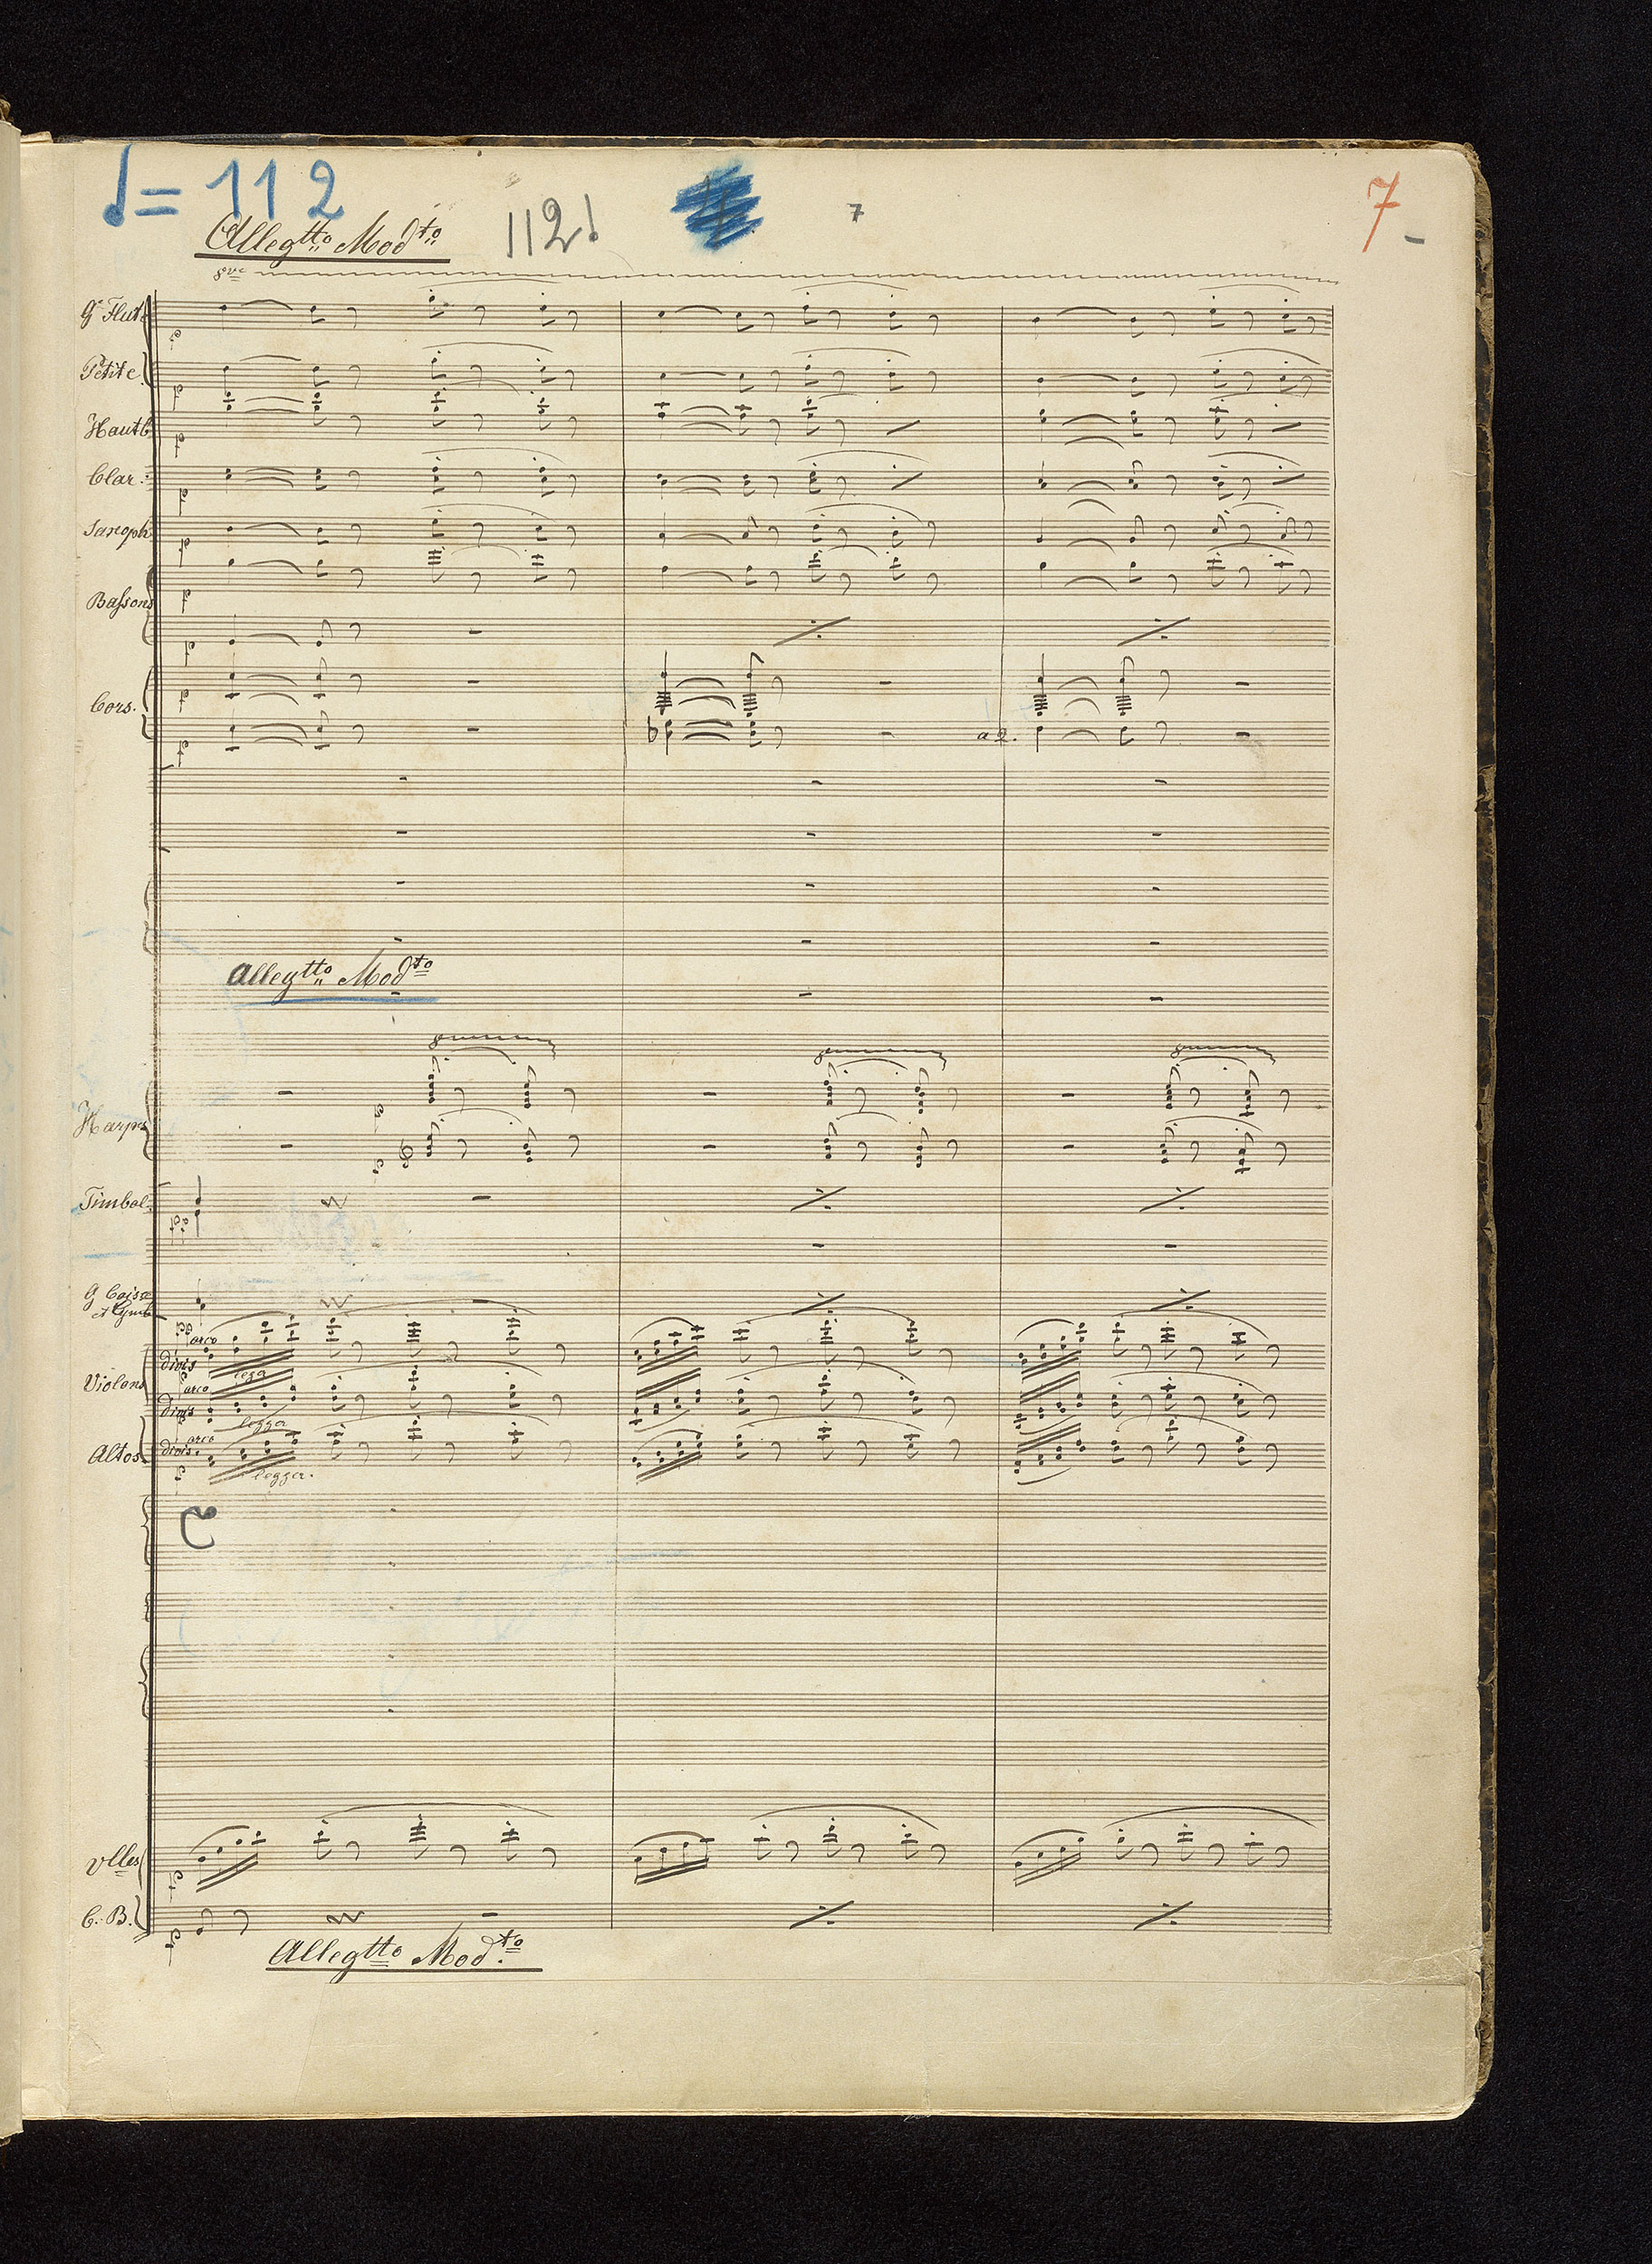 ♩= 112
7
112!
7 -
Allegtto Modto
8va
Gde Flute
Petite
Hautb
Clar.
Saxoph
Bassons
Cors.
a 2.
Allegtto Modto
Harpes
Timbal.
G Caisse
et Cymb
arco
divis
legg
Violons
arco
divis
legga
arco
Altos
divis.
legger.
Vlles
C. B.
Allegtto Modto